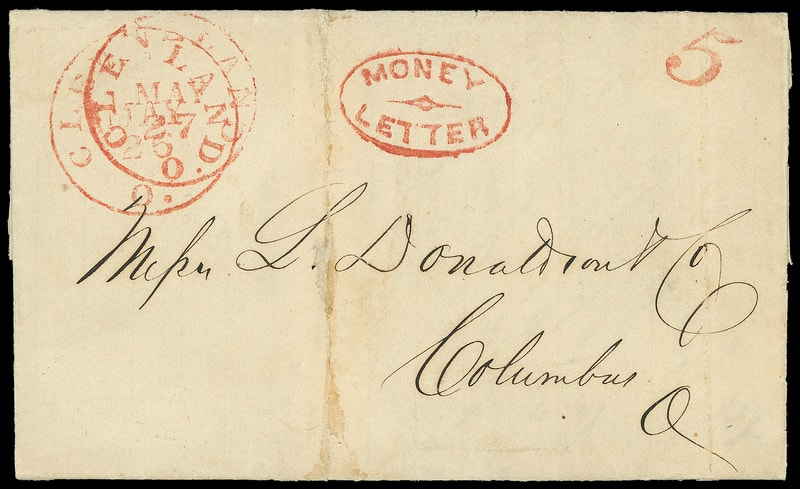 CLEVELAND. O.
MAY
27
CLEVELAND
MAY
26
O.
MONEY
LETTER
5
Messrs L. Donaldson & Co
Columbus
O